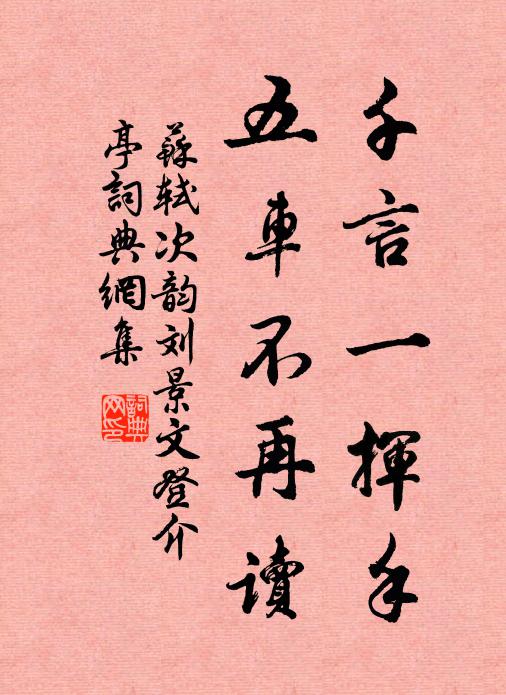 千言一揮手
五車不再讀
蘇軾次韵刘景文登介
亭詞典網集
詞典
网印